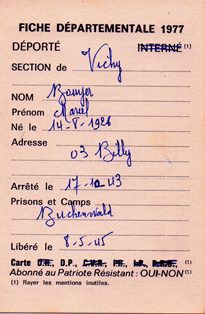 FICHE DÉPARTEMENTALE 1977
DÉPORTÉ INTERNÉ (1)
SECTION de Vichy
NOM Bouyer
Prénom Marcel
Né le 14-8-1926
Adresse
03 Billy
Arrêté le 17-12-43
Prisons et Camps
Buchenwald
Libéré le 8-5-45
Carte D.R., D.P., C.V.R.,
Abonné au Patriote Résistant : OUI-NON (1)
(1) Rayer les mentions inutiles.